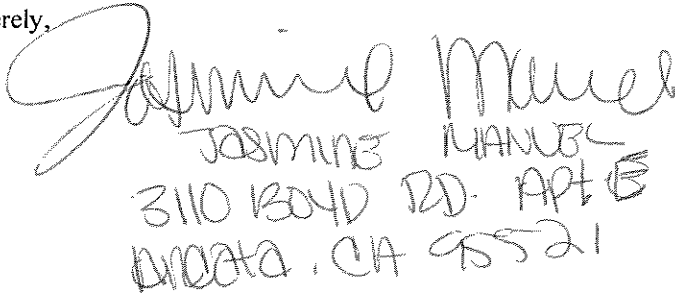 erely,
Jasmine Manuel
JASMINE MANUEL
3110 BOYD RD. APt E
ARCATA, CA 95521